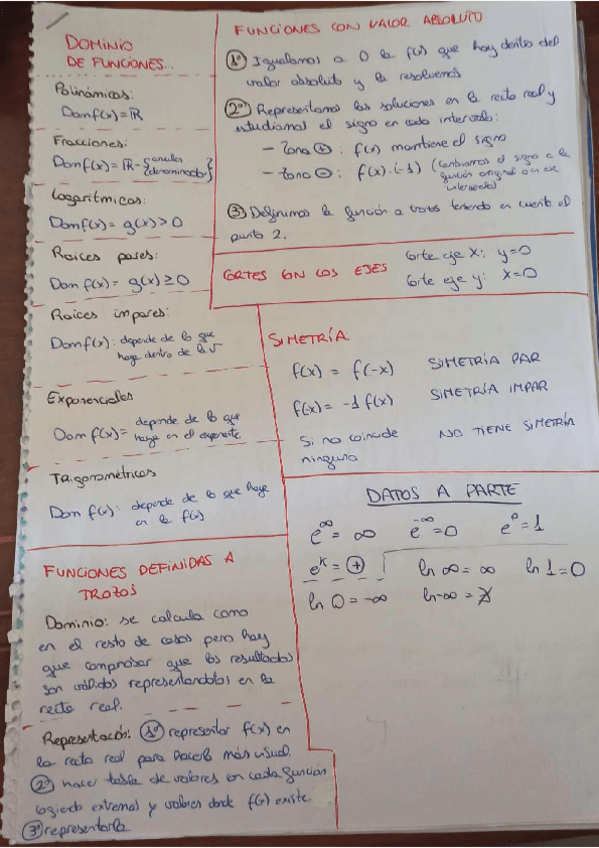 DOMINIO
DE FUNCIONES...
Polinómicas:
Domf(x)=ℝ
Fracciones:
Domf(x)=ℝ-{anula denominador}
Logarítmicas:
Domf(x)= g(x)>0
Raíces pares:
Domf(x)= g(x)≥0
Raíces impares:
Domf(x): depende de lo que
haya dentro de la √
Exponenciales
Domf(x)= depende de lo que
haya en el exponente
Trigonometricos
Domf(x): depende de lo que haya
en la f(x)
FUNCIONES DEFINIDAS A
TROZOS
Dominio: se calcula como
en el resto de casos pero hay
que comprobar que los resultados
son válidos representandolos en la
recta real.
Representación: 1º representar f(x) en
la recta real para hacerla más visual.
2º hacer tabla de valores en cada función
cogiendo extremos y valores donde f(x) existe.
3º representarla
FUNCIONES CON VALOR ABSOLUTO
1º Igualamos a 0 la f(x) que hay dentro del
valor absoluto y la resolvemos
2º Representamos las soluciones en la recta real y
estudiamos el signo en cada intervalo:
- Zona ⊕: f(x) mantiene el signo
- Zona ⊖: f(x)·(-1) (Cambiamos el signo a la
función original en ese
intervalo)
3 Definimos la función a trozos teniendo en cuenta el
punto 2.
CORTES CON LOS EJES
Corte eje X: y=0
Corte eje y: X=0
SIMETRÍA
f(x) = f(-x) SIMETRÍA PAR
f(x)= -1 f(x) SIMETRÍA IMPAR
Si no coincide NO TIENE SIMETRÍA
ninguna
DATOS A PARTE
e^∞ = ∞ e^-∞ = 0 e^0 = 1
e^k = ⊕ ln ∞ = ∞ ln 1 = 0
ln 0 = -∞ ln -∞ = ∄